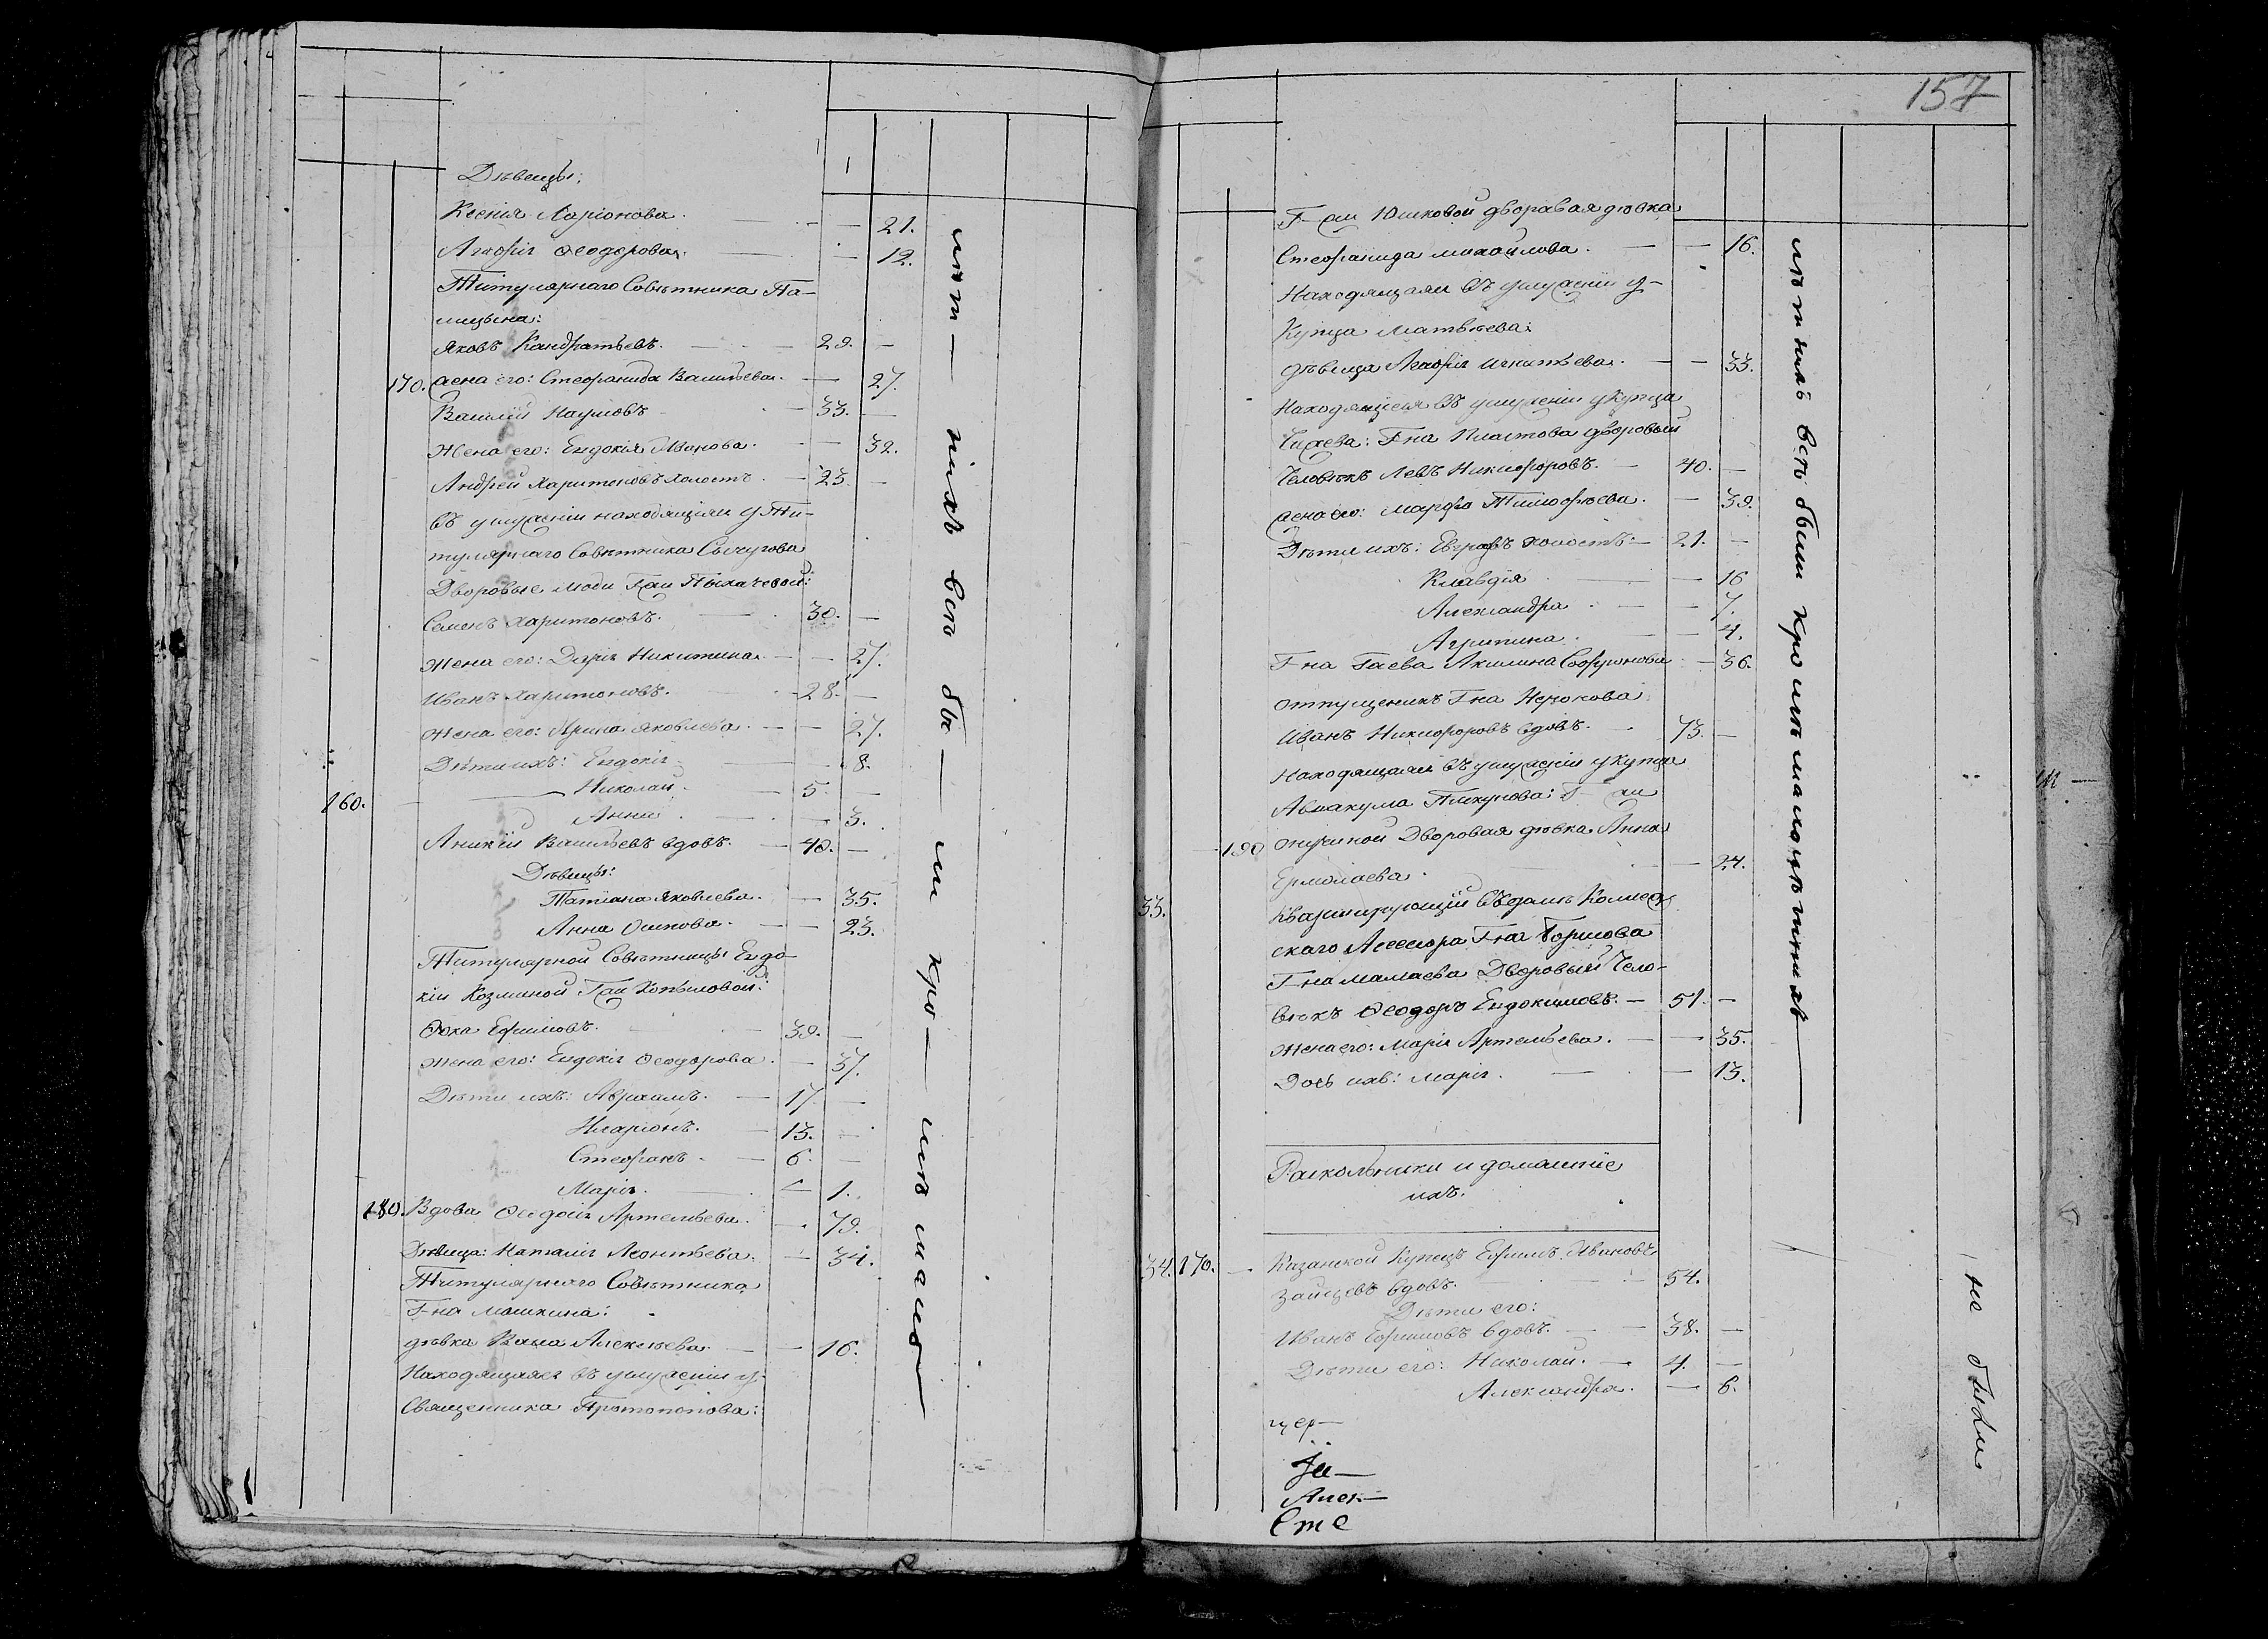 Дѣвицы:
Ксенія Ларіонова. — — 21.
Агафія Ѳеодорова. — — 12.
Титулярнаго Совѣтника Па-
лицына:
Яковъ Кандратьевъ. — 29. —
170. жена его: Стефанида Васильева. — 27.
Василій Наумовъ — 33. —
Жена его: Евдокія Иванова. — 32.
Андрей Харитоновъ холостъ. — 23. —
въ услуженіи находящіяся у Ти-
тулярнаго Совѣтника Сычугова
Дворовые люди Гжи Пыхачевой:
Семенъ Харитоновъ. — 30. —
Жена его: Дарія Никитина. — — 27.
Иванъ Харитоновъ. — 28. —
Жена его: Арина Яковлева. — — 27.
Дѣти ихъ: Евдокія — 8.
Николай. — 5. —
160.
Анна. — 3.
Аникій Васильевъ вдовъ. — 40. —
Дѣвицы:
Татіана Яковлева. — 35.
Анна Осипова. — — 23.
Титулярной Совѣтницы Евдо-
кіи Козминой Гжи Копыловой:
Ѳока Ефимовъ. — 39. —
Жена его: Евдокія Ѳеодорова. — 37.
Дѣти ихъ: Авраамъ. — 17. —
Иларіонъ. — 13. —
Стефанъ. — 6. —
Марія. — 1.
180. Вдова Ѳеодосія Артемьева. — 79.
Дѣвица: Наталія Леонтьева. — 34.
Титулярнаго Совѣтника
Г-на Мошкина:
дѣвка Васса Алексѣева. — — 16.
Находящаяся въ услуженіи у
Священника Протопопова:
лѣт — нихъ всѣ бы — ли кро — мѣ мало —
157
Г-жи Юшковой дворовая дѣвка
Стефанида Михайлова. — — 16.
Находящаяся въ услуженіи у
Купца Матвѣева:
дѣвица Агафія Игнатьева. — — 33.
Находящіеся въ услуженіи у Купца
Чижева: Г-на Пластова дворовый
Человѣкъ Левъ Никифоровъ. — 40. —
жена его: Марфа Тимофѣева. — 39.
Дѣти ихъ: Евграфъ холостъ — 21. —
Клавдія — 16
Александра. — — 7.
Агрипина. — — 4.
Г-на Гаева Акилина Софронова — 36.
отпущеникъ Г-на
Иванъ Никифоровъ вдовъ. — 73. —
Находящаяся въ услуженіи у купца
Авакума Г-жи
190 Дворовая дѣвка Анна
Ермолаева. — 24.
33. Квартирующій въ домѣ Коллеж-
скаго Асессора Г-на
Г-на Мамаева Дворовый Чело-
вѣкъ Ѳеодоръ Евдокимовъ. — 51. —
Жена его: Марія Артемьева. — — 35.
Дочь ихъ: Марія. — — 13.
Раскольники и домашніе
ихъ.
34. 170. — Казанской Купецъ Ефимъ Ивановъ
Зайцевъ вдовъ. — 54.
Дѣти его:
Иванъ Ефимовъ вдовъ. — 38. —
Дѣти его: Николай. — 4. —
Александра. — 6.
цер—
Алек—
Сте
лѣтнихъ всѣ были кромѣ малолѣтнихъ —
не были